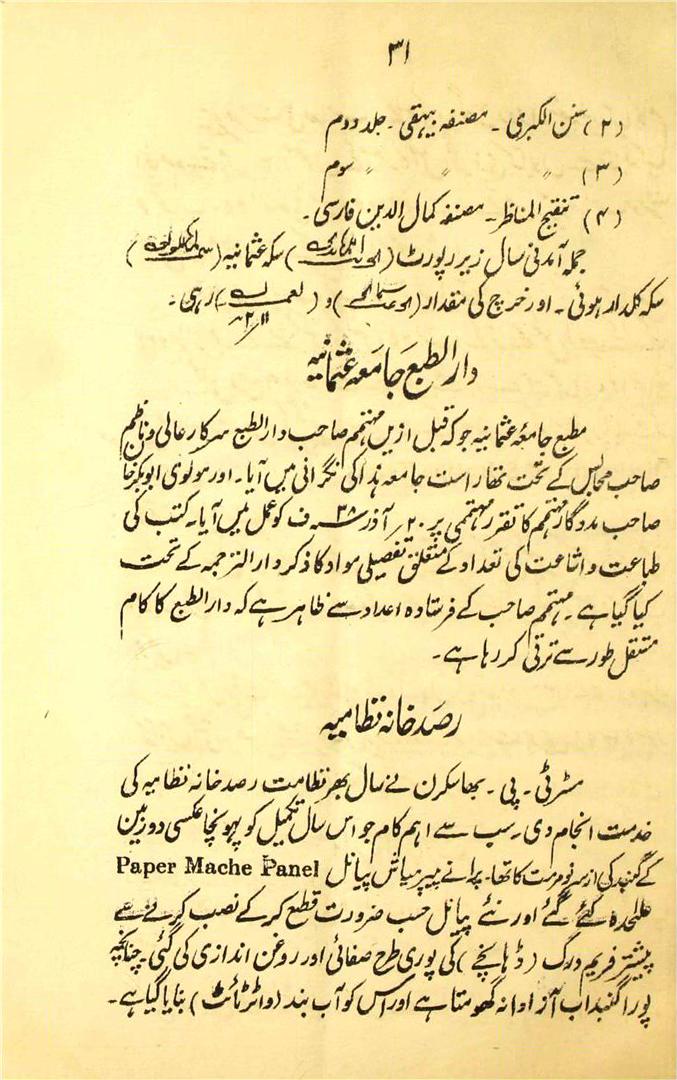 ۳۱
(۲) سنن الکبری ۔ مصنفہ بیہقی ۔ جلد دوم
(۳) 〃 〃 〃 سوم
(۴) تنقیح المناظر ۔ مصنفہ کمال الدین فارسی ۔
جملہ آمدنی سال زیر رپورٹ ( ) سکہ عثمانیہ ( )
سکہ کلدار ہوئی ۔ اور خرچ کی مقدار ( ) و ( ) رہی ۔
دار الطبع جامعہ عثمانیہ
مطبع جامعۂ عثمانیہ جو کہ قبل ازیں مہتمم صاحب دار الطبع سرکار عالی و ناظم
صاحب مجالس کے تحت تھا راست جامعہ ہذا کی نگرانی میں آیا ۔ اور مولوی ابوبکر خا
صاحب مددگار مہتمم کا تقرر مہتممی پر ۲۰ / آذر ۳۸ ف کو عمل میں آیا ۔ کتب کی
طباعت و اشاعت کی تعداد کے متعلق تفصیلی مواد کا ذکر دار الترجمہ کے تحت
کیا گیا ہے ۔ مہتمم صاحب کے فرستادہ اعداد سے ظاہر ہے کہ دار الطبع کا کام
مستقل طور سے ترقی کر رہا ہے ۔
رصد خانہ نظامیہ
مسٹر ٹی ۔ پی ۔ بھاسکرن نے سال بھر نظامت رصد خانہ نظامیہ کی
خدمت انجام دی ۔ سب سے اہم کام جو اس سال تکمیل کو پہونچا عکسی دوربین
کے گنبد کی از سر نو مرمت کا تھا ۔ پرانے پیپر میاش پیانل Paper Mache Panel
علحدہ کئے گئے اور نئے پیانل حسب ضرورت قطع کر کے نصب کرنے سے
پیشتر فریم ورک (ڈھانچے) کی پوری طرح صفائی اور روغن اندازی کی گئی ۔ چنانچہ
پورا گنبد اب آزادانہ گھومتا ہے اور اس کو آب بند (واٹر ٹائٹ) بنایا گیا ہے ۔